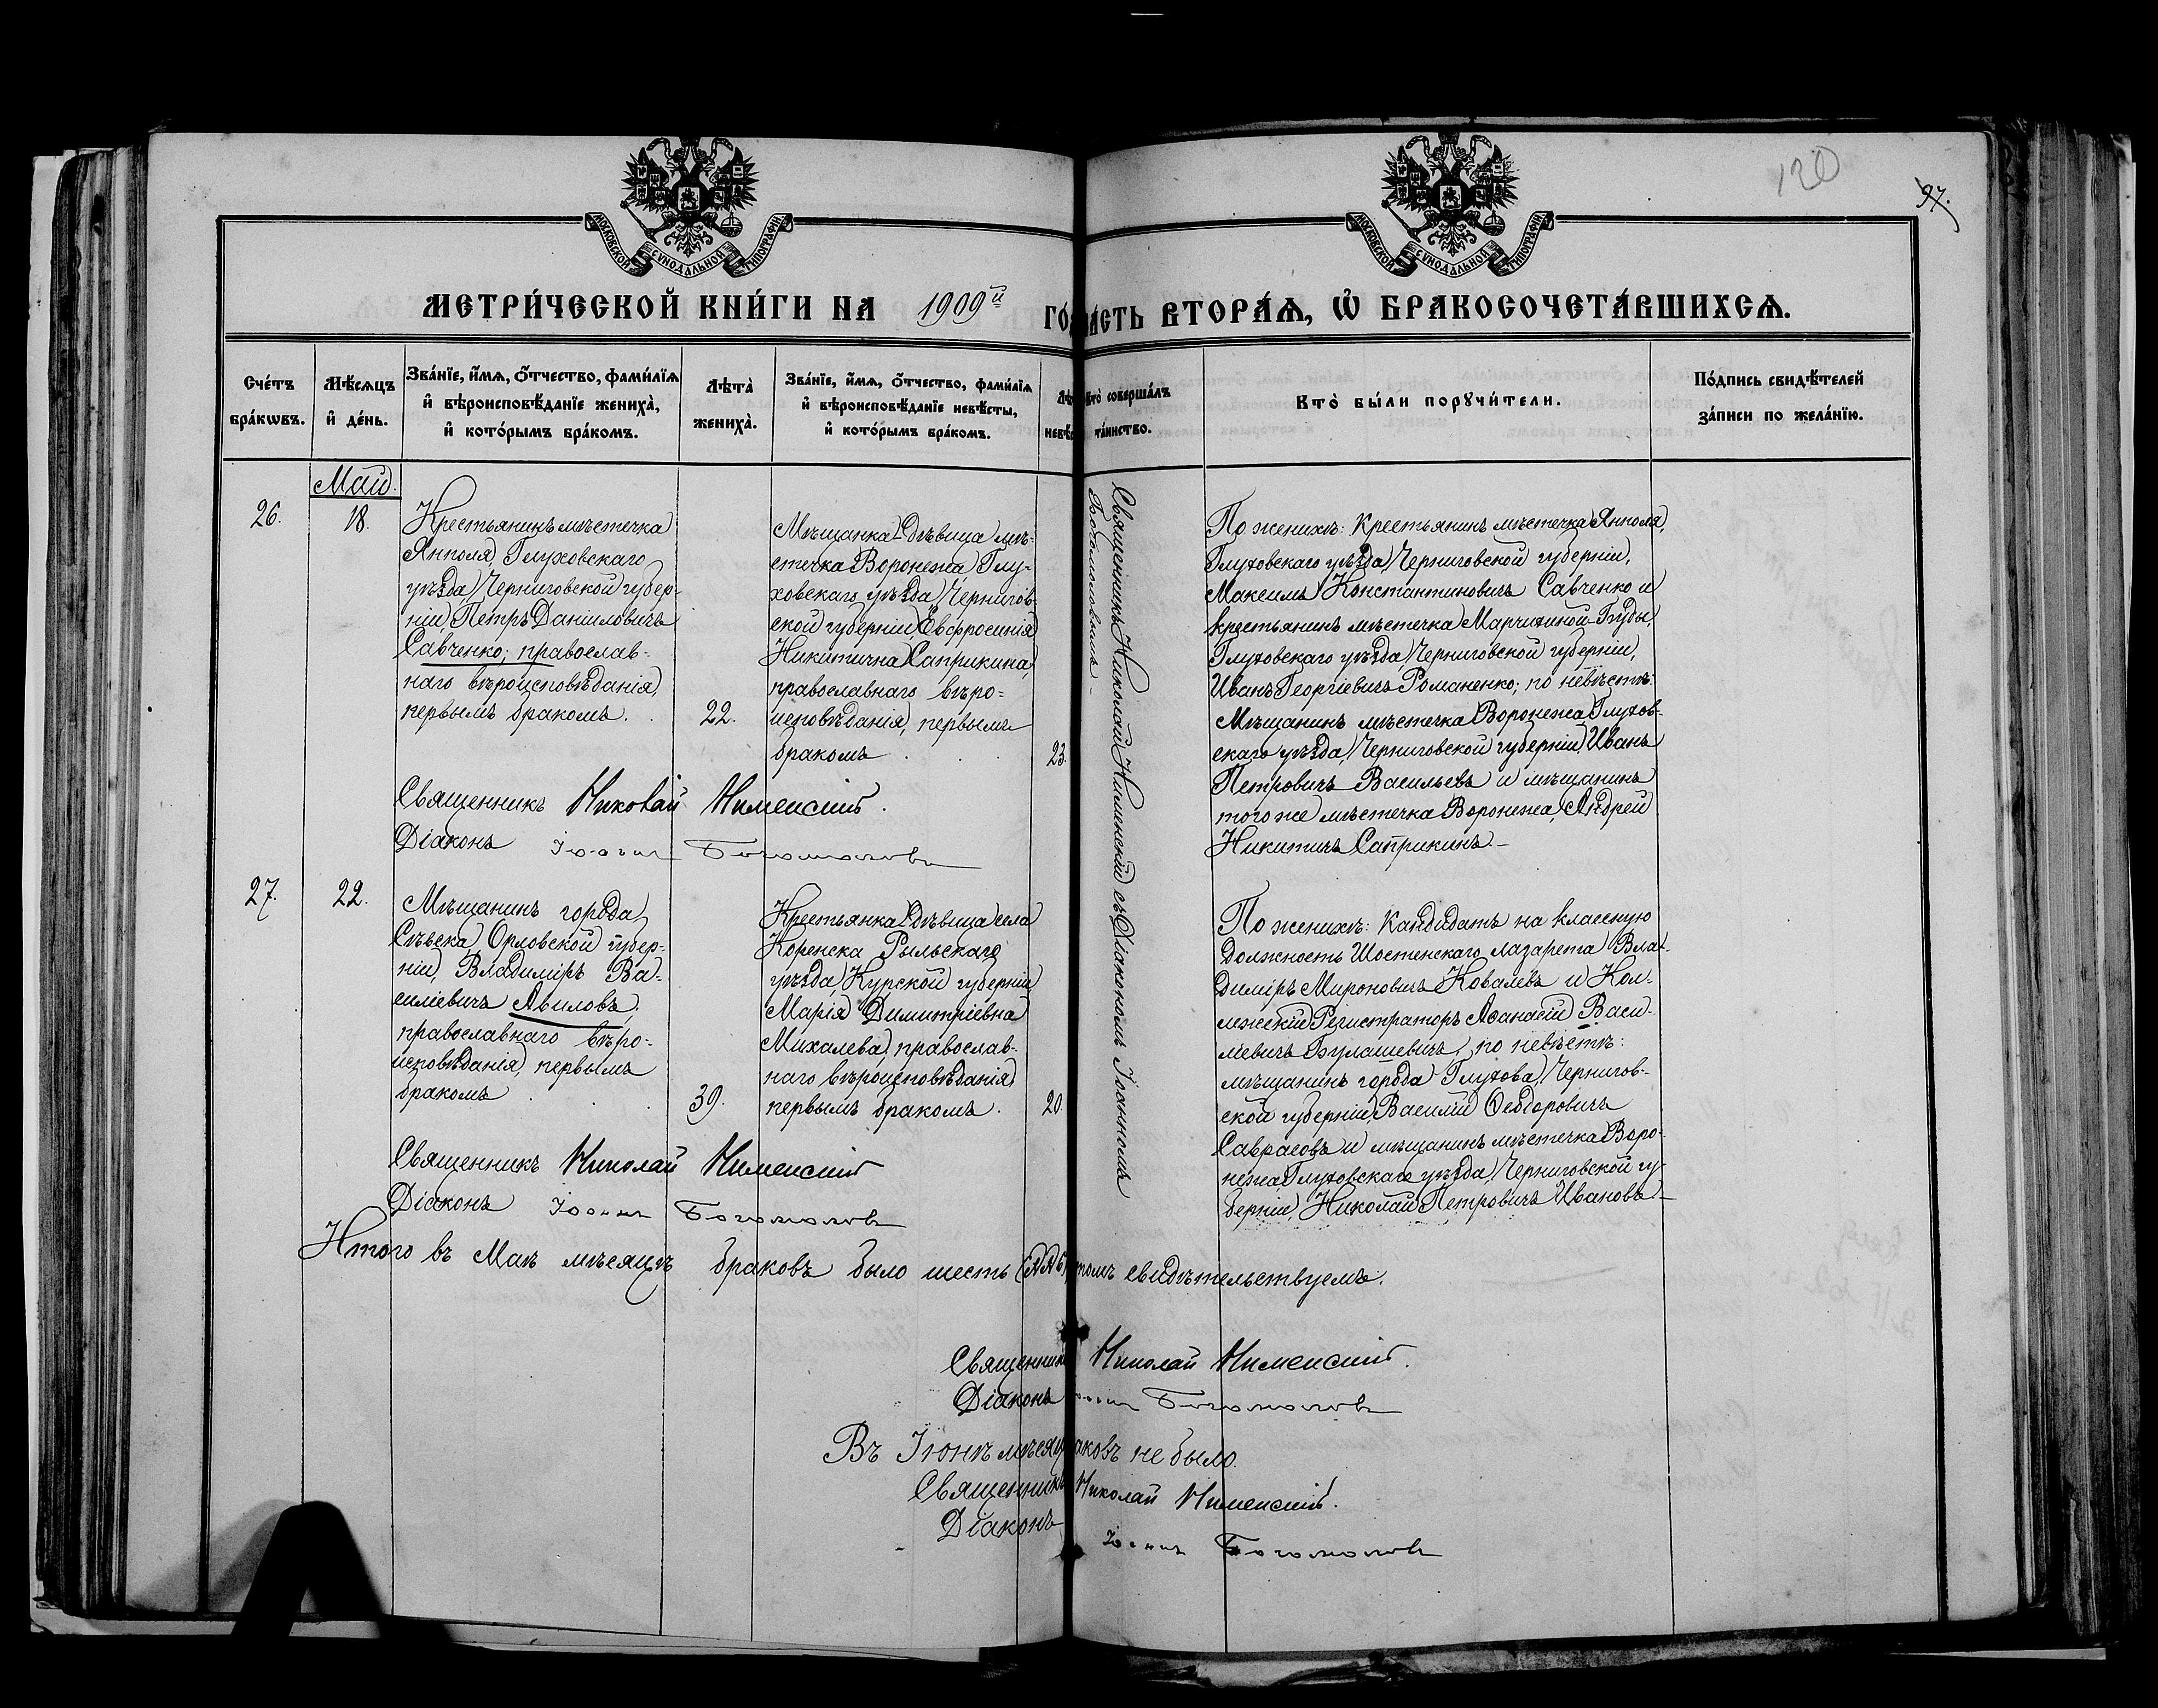 120
97.
МОСКОВСКОЙ СѴНОДАЛЬНОЙ ТИПОГРАФІИ
МОСКОВСКОЙ СѴНОДАЛЬНОЙ ТИПОГРАФІИ
МЕТРИ́ЧЕСКОЙ КНИ́ГИ НА 1909й ГО́
ЧА́СТЬ ВТОРА́Ѧ, Ѡ҆ БРАКОСОЧЕТА́ВШИХСѦ.
Сче́тъ
бра́кѡвъ.
Мѣ́сѧцъ
и҆ де́нь.
Зва́нїе, и҆́мѧ, ѻ҆́тчество, фами́лїѧ
и҆ вѣроисповѣ́данїе жениха̀,
и҆ кото́рымъ бра́комъ.
Лѣта̀
жениха̀.
Зва́нїе, и҆́мѧ, ѻ҆́тчество, фами́лїѧ
и҆ вѣроисповѣ́данїе невѣ́сты,
и҆ кото́рымъ бра́комъ.
Лѣ
невѣ́
Кто̀ соверша́лъ
та́инство.
Кто̀ бы́ли порꙋчи́тели.
По́дпись свидѣ́телей
за́писи по жела́нїю.
Май.
26.
18.
Крестьянинъ мѣстечка
Янполя, Глуховскаго
уѣзда, Черниговской губер-
ніи, Петръ Даниловичъ
Савченко; православ-
наго вѣроисповѣданія,
первымъ бракомъ.
22.
Мѣщанка-дѣвица мѣ-
стечка Воронежа, Глу-
ховскаго уѣзда, Чернигов-
ской губерніи, Евфросинія
Никитична Саприкина,
православнаго вѣро-
исповѣданія, первымъ
бракомъ
23.
Священникъ Николай Нименскій съ Діакономъ Іоанномъ
Богомоловымъ.
По женихѣ: Крестьянинъ мѣстечка Янполя,
Глуховскаго уѣзда, Черниговской губерніи,
Максимъ Константиновичъ Савченко и
крестьянинъ мѣстечка Марчихиной-Буды
Глуховскаго уѣзда, Черниговской губерніи,
Иванъ Георгіевичъ Романенко; по невѣстѣ:
Мѣщанинъ мѣстечка Воронежа, Глухов-
скаго уѣзда, Черниговской губерніи, Иванъ
Петровичъ Васильевъ и мѣщанинъ
того же мѣстечка Воронежа, Андрей
Никитичъ Саприкинъ.
Священникъ Николай Нименскій.
Діаконъ Іоаннъ Богомоловъ
27.
22.
Мѣщанинъ города
Сѣвска, Орловской губер-
ніи, Владиміръ Ва-
силіевичъ Авиловъ,
православнаго вѣро-
исповѣданія, первымъ
бракомъ
39.
Крестьянка-дѣвица села
Коренска Рыльскаго
уѣзда, Курской губерніи,
Марія Димитріевна
Михалева, православ-
наго вѣроисповѣданія,
первымъ бракомъ.
20.
По женихѣ: Кандидатъ на классную
должность Шостенскаго лазарета Вла-
диміръ Мироновичъ Ковалевъ и Кол-
лежскій Регистраторъ Аѳанасій Васи-
ліевичъ Булашевичъ, по невѣстѣ:
мѣщанинъ города Глухова, Чернигов-
ской губерніи, Василій Ѳеодоровичъ
Саврасовъ и мѣщанинъ мѣстечка Воро-
нежа Глуховскаго уѣзда, Черниговской гу-
берніи, Николай Петровичъ Ивановъ
Священникъ Николай Нименскій
Діаконъ Іоаннъ Богомоловъ
Итого въ Маѣ мѣсяцѣ браковъ было шесть томъ свидѣтельствуемъ.
Священникъ Николай Нименскій.
Діаконъ Богомоловъ
Въ Іюнѣ мѣсяцѣ браковъ не было.
Священникъ Николай Нименскій.
Діаконъ Іоаннъ Богомоловъ